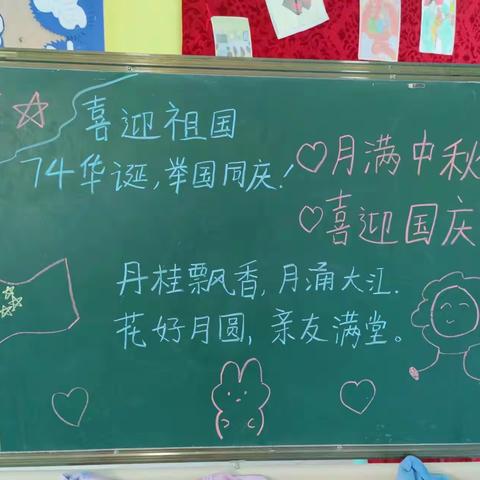 喜迎祖国
74华诞,举国同庆!
♡月满中秋
♡喜迎国庆
丹桂飘香,月涌大江.
花好月圆,亲友满堂。